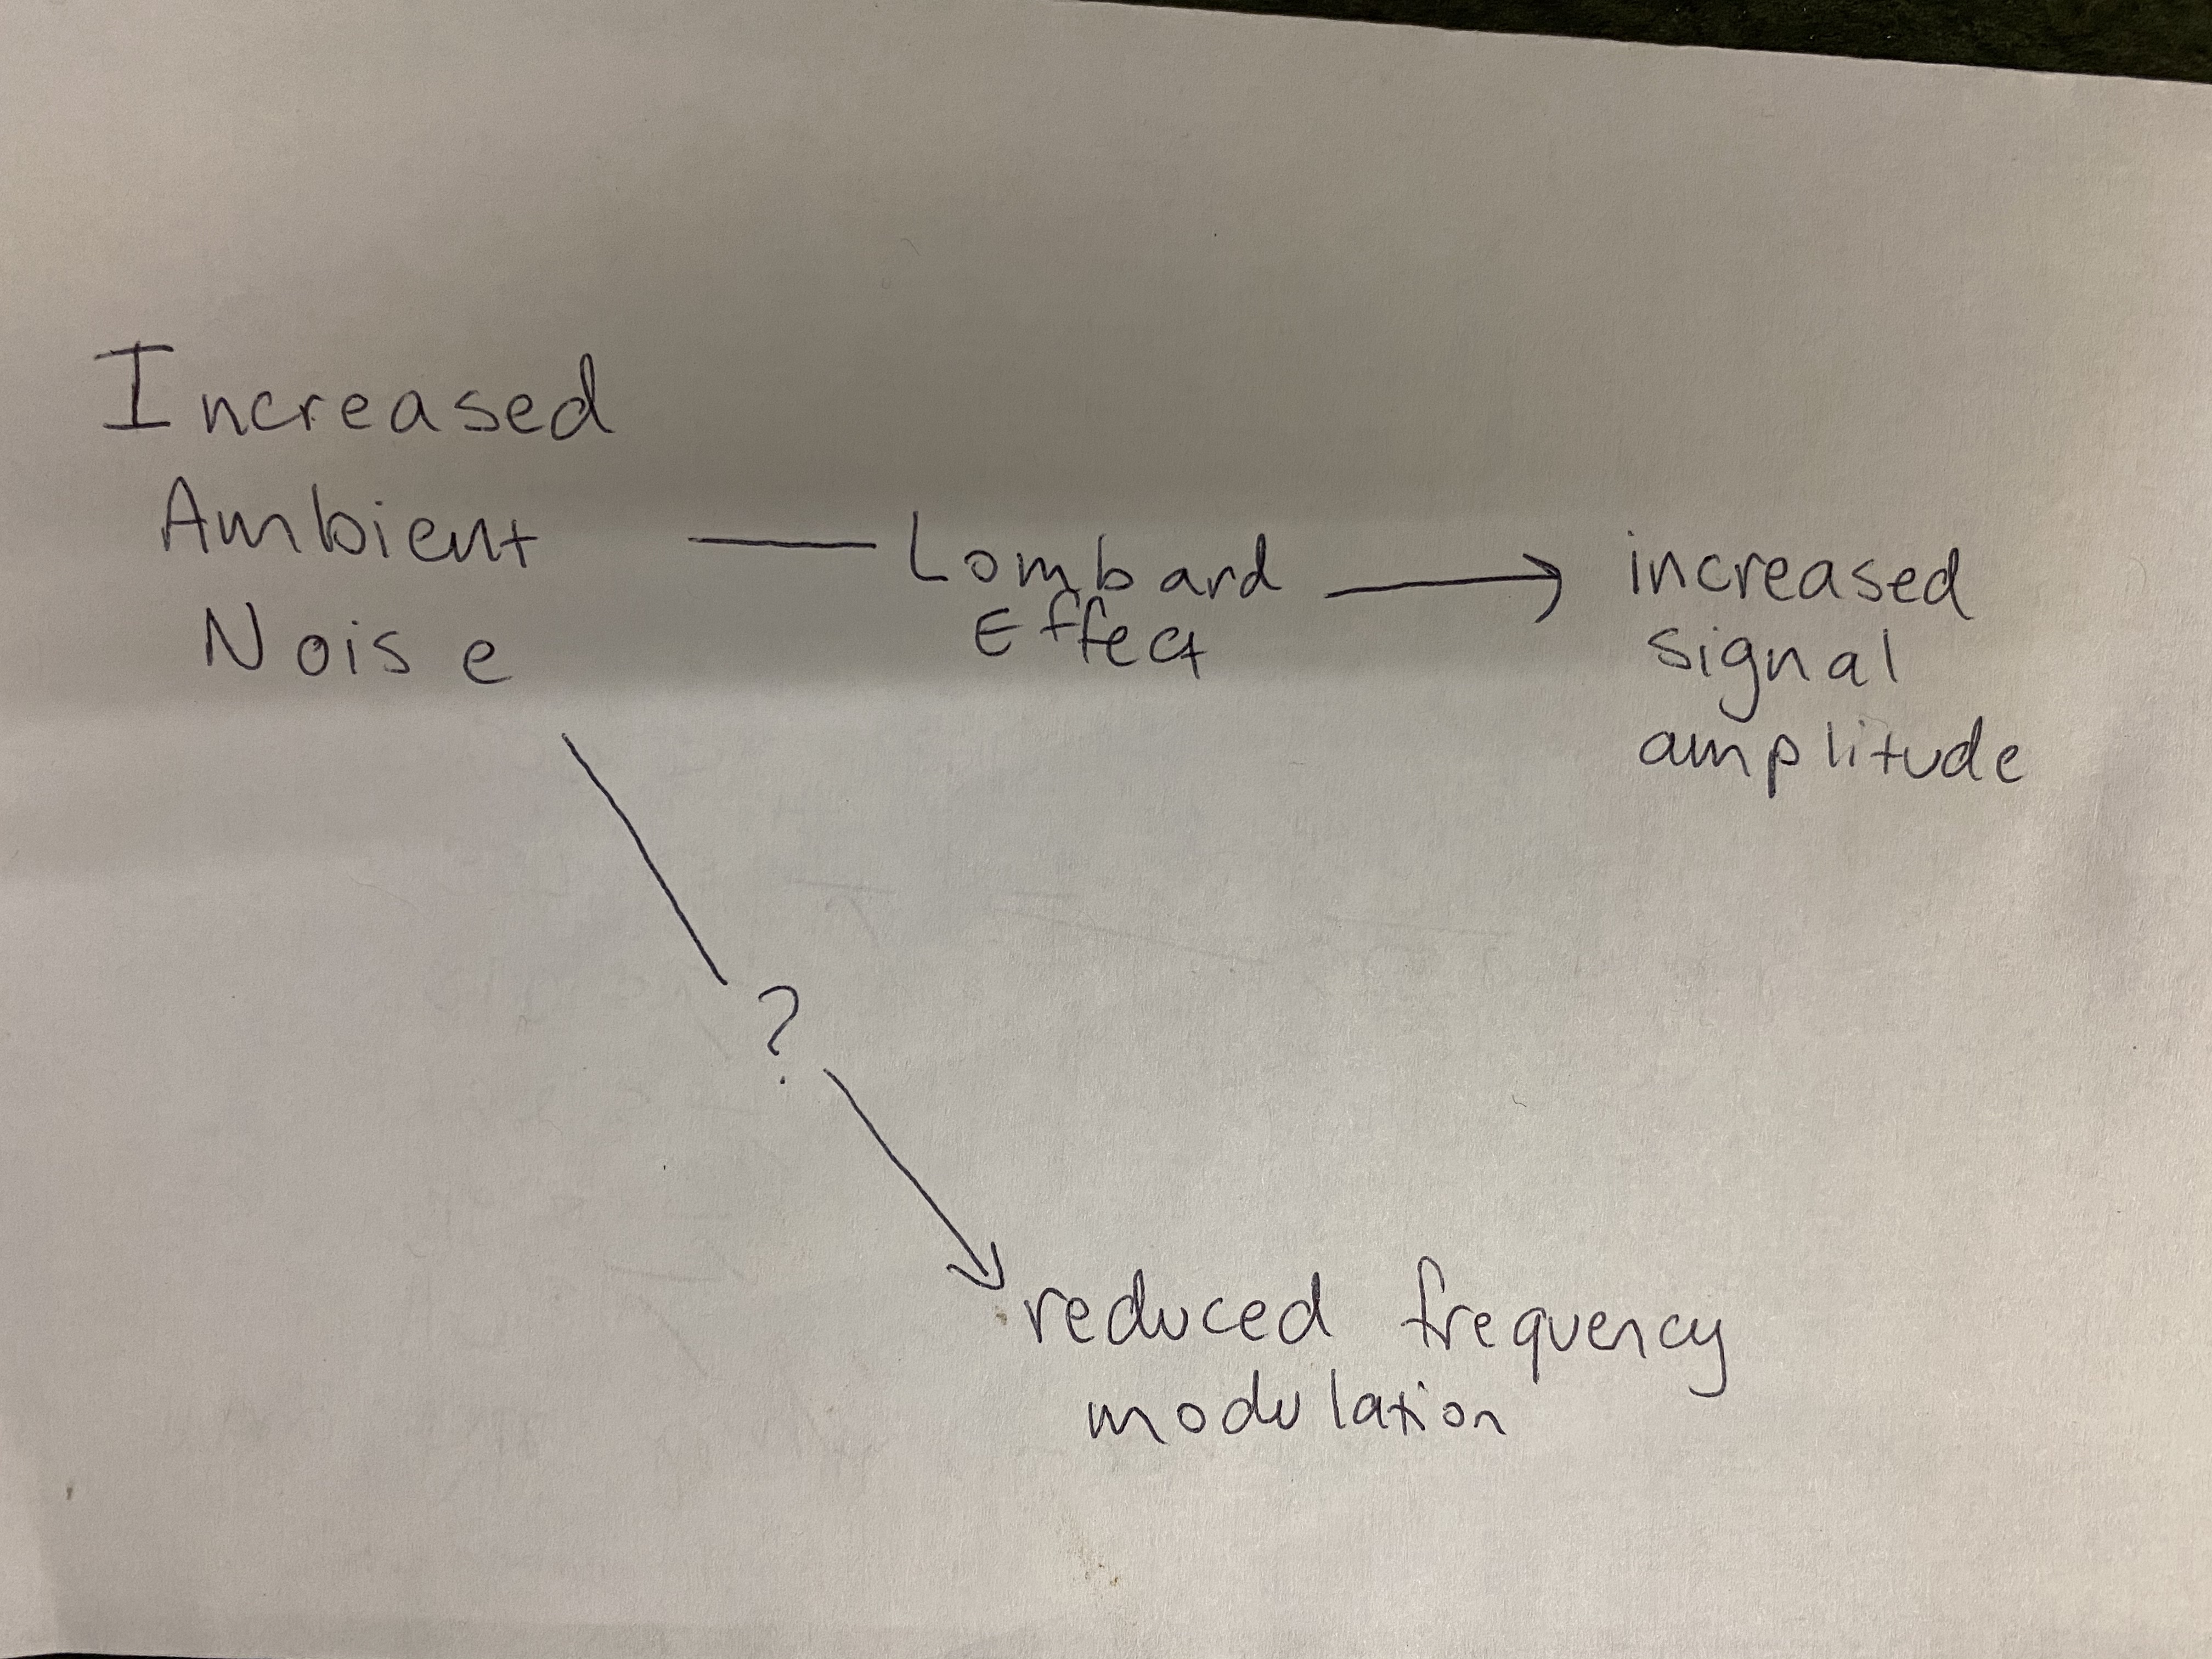 Increased
Ambient
Noise
Lombard
Effect
increased
signal
amplitude
?
reduced frequency
modulation